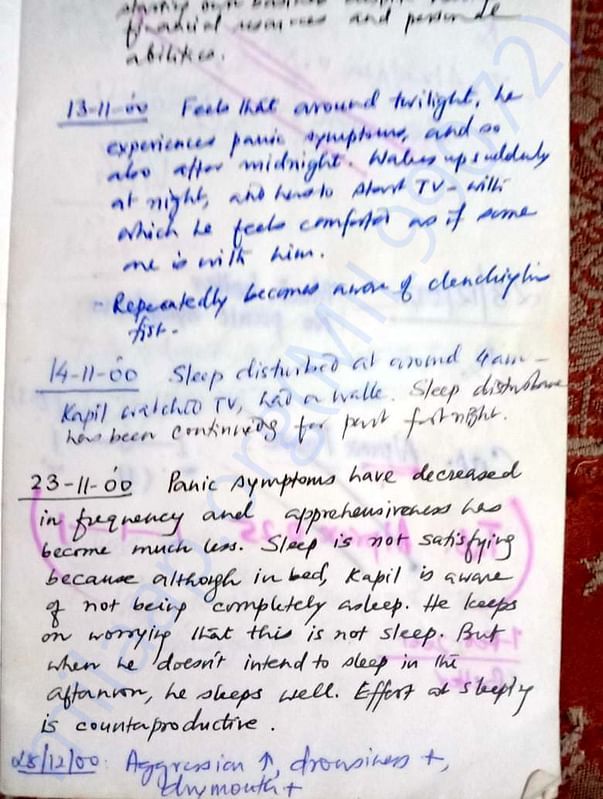 starting own business despite
financial resources and personal
abilities.
13-11-00 Feels that around twilight, he
experiences panic symptoms, and so
also after midnight. Wakes up suddenly
at night, and has to start TV - with
which he feels comforted as if some
one is with him.
- Repeatedly becomes aware of clenching his
fist -
14-11-00 Sleep disturbed at around 4am -
Kapil watched TV, had a walk. Sleep disturbance
has been continuing for past fortnight.
23-11-00 Panic symptoms have decreased
in frequency and apprehensiveness has
become much less. Sleep is not satisfying
because although in bed, Kapil is aware
of not being completely asleep. He keeps
on worrying that this is not sleep. But
when he doesn't intend to sleep in the
afternoon, he sleeps well. Effort at sleeping
is counterproductive.
28/12/00: Aggression ↑, drowsiness +,
dry mouth +
milaap.org(MIL99072)